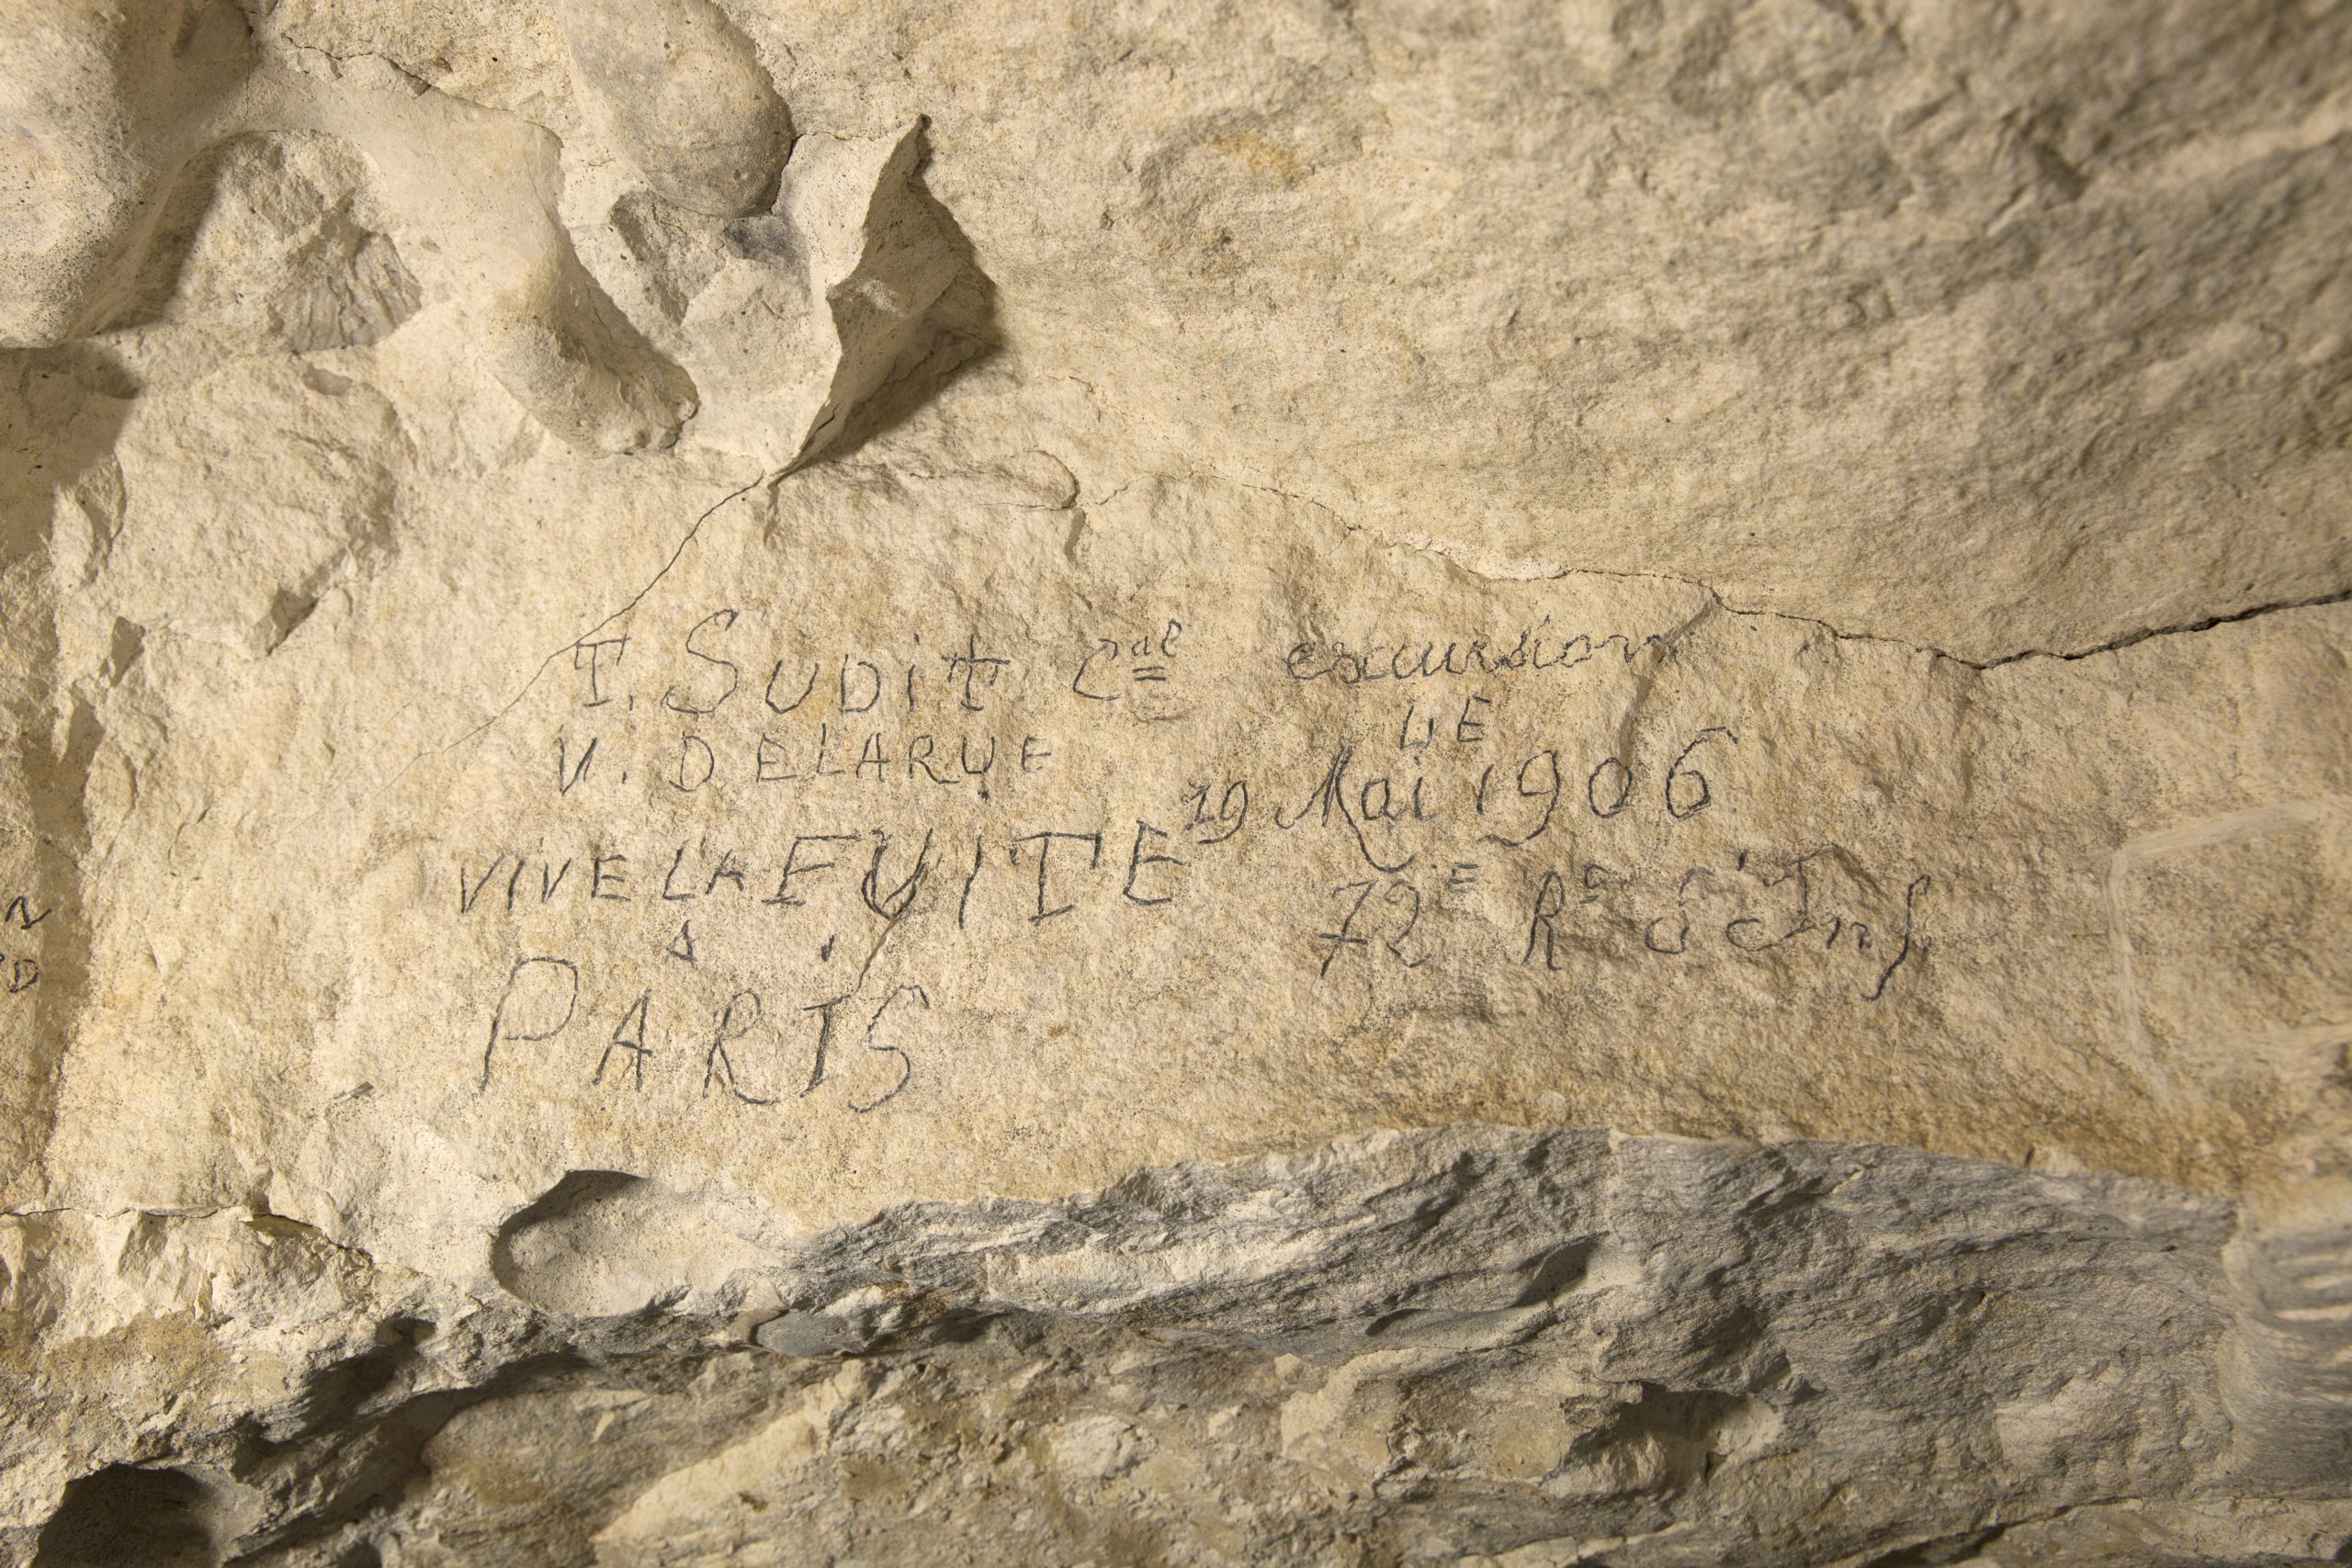 T. SUDit Cal
V. DELARUE
VIVE LA FUITE
A
PARIS
excursion
LE
19 Mai 1906
72E Rt d'Inf